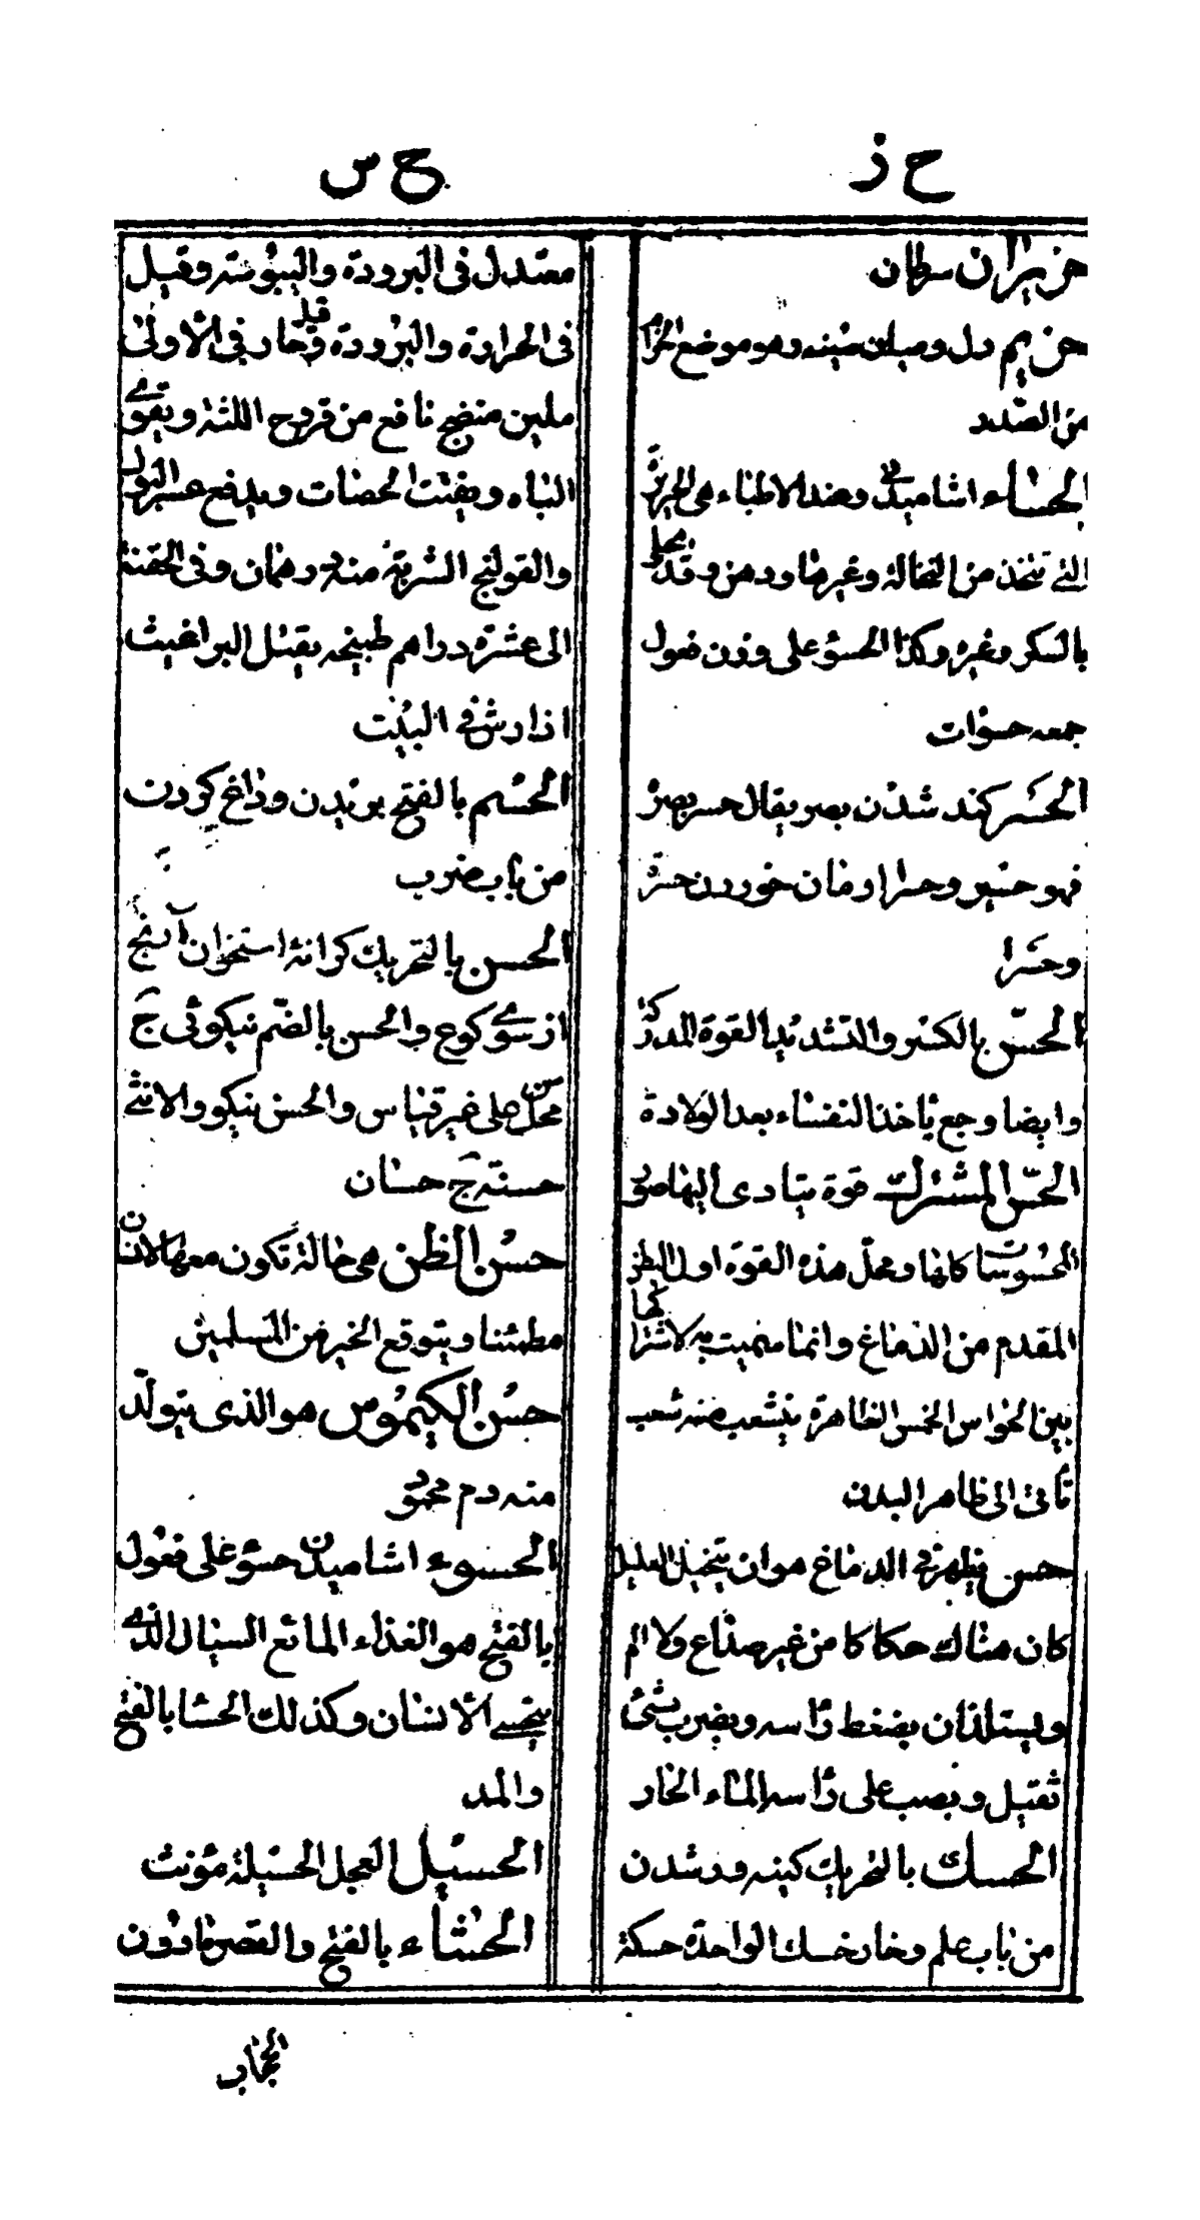 ح ز
حزیران سرطان
حزیم دل و میان سینه و هو موضع الحزام
من الصّدر
الحساء اشامیدنی و عند الاطباء هی الحریرة
التی تتخذ من النخالة و غیرها و دهن و قد یحلی
بالسکر و غیره و کذا الحسو علی وزن فعول
جمعه حسوات
الحسر کند شدن بصر یقال حسر بصره
فهو حسیر و حسرا ارمان خوردن حسرة
و حسرا
الحسّ بالکسر والتشدید القوة المدرکة
وایضا وجع تاخذ النفساء بعد الولادة
الحسّ المشترک قوة یتادی الیها صور
المحسوسات کلها و محلّ هذه القوة اول البطن
المقدم من الدماغ وانما سمیت به لاشتراکها
بین الحواس الخمس الظاهرة ینشعب منه شعب
تأتی الی ظاهر البدن
حس یظهر فی الدماغ هو ان یتخیل العلیل
کان هناک حکاکا من غیر صداع ولا الم
ویستلذ ان یضغط رأسه ویضرب بشیٔ
ثقیل ویصب علی رأسه الماء الحار
الحسک بالتحریک کینه ور شدن
من باب علم و خار خسک الواحدة حسکة
ح س
معتدل فی البرودة والیبوسته وقیل
فی الحرارة والبرودة وقیل حار فی الاولی
ملین منضج نافع من قروح اللثة و یقوی
الباه ویفتت الحصات ویدفع عسر البول
والقولنج الشربة منه درهمان وفی الحقنة
الی عشرة دراهم طبیخه یقتل البراغیث
اذا رش فی البیت
الحسم بالفتح بریدن و داغ کردن
من باب ضرب
الحسن بالتحریک کرانهٔ استخوان آرنج
از سوی کوع والحسن بالضّم نیکوئی ج
محاسن علی غیر قیاس والحسن نیکو والانثی
حسنة ج حسان
حسن الظن هی حالة تکون معها الانسان
مطمئنا ویتوقع الخیر من المسلمین
حسن الکیموس هو الذی یتولّد
منه دم محمود
الحسوء اشامیدن حسو علی فعول
بالفتح هو الغذاء المائع السیال الذی
یتحسی الانسان وکذلک الحسا بالفتح
والمد
الحسیل العجل الحسیلة مؤنث
الحشاء بالفتح والقصر مادون
الحجاب